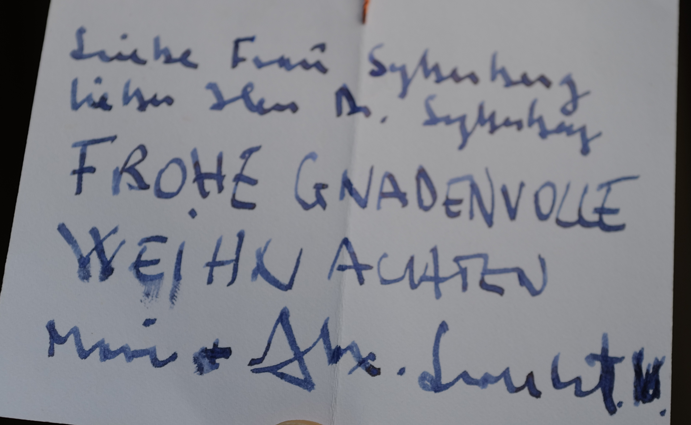 Liebe Frau Syberberg
lieber Herr Dr. Syberberg
FROHE GNADENVOLLE
WEIHNACHTEN
+ Alex.